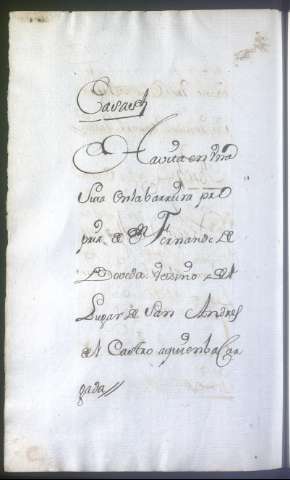 Casares
Havita en una
suia en la barrera pro
pria de Dn Fernando de
Doveda vecino del
Lugar de San Andres
del Castro aquien ba Car
gada //